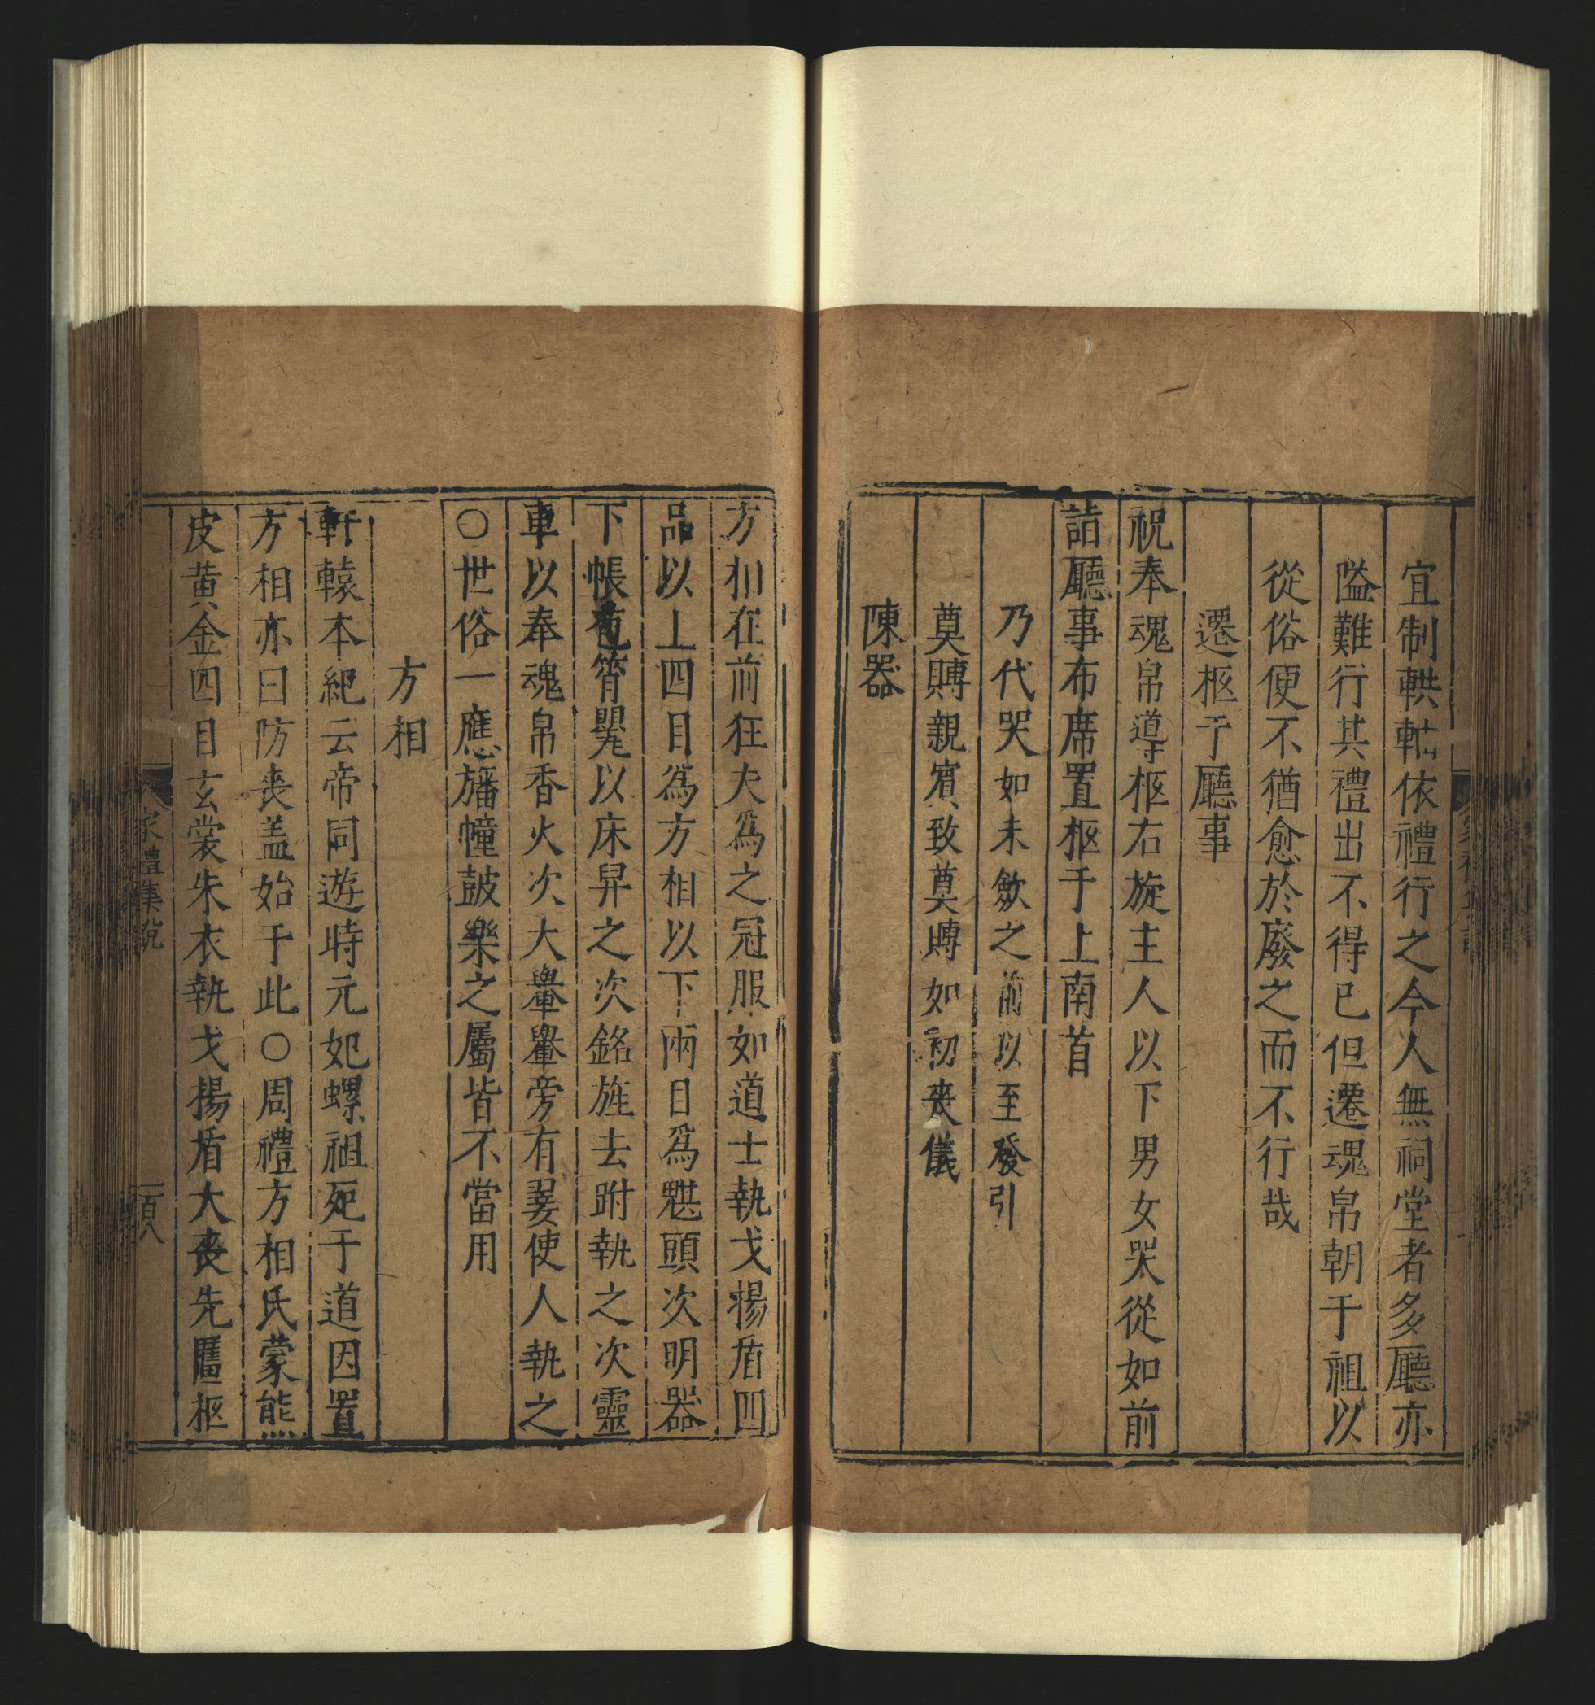 宜制輁軸依禮行之今人無祠堂者多厛亦
隘難行其禮出不得已但遷魂帛朝于祖以
從俗便不猶愈於廢之而不行哉
遷柩于厛事
祝奉魂帛導柩右旋主人以下男女哭從如前
詣厛事布席置柩于上南首
乃代哭如未斂之前以至發引
奠賻親賓致奠賻如初喪儀
陳器
方相在前狂夫爲之冠服如道士執戈揚盾四
品以上四目爲方相以下兩目爲魌頭次明器
下帳苞筲甖以床舁之次銘旌去跗執之次靈
車以奉魂帛香火次大轝轝旁有翣使人執之
○世俗一應旛幢鼓樂之屬皆不當用
方相
軒轅本紀云帝同遊時元妃螺祖死于道因置
方相亦曰防喪盖始于此○周禮方相氏蒙熊
皮黄金四目玄裳朱衣執戈揚盾大喪先匶柩
家禮集說
百八